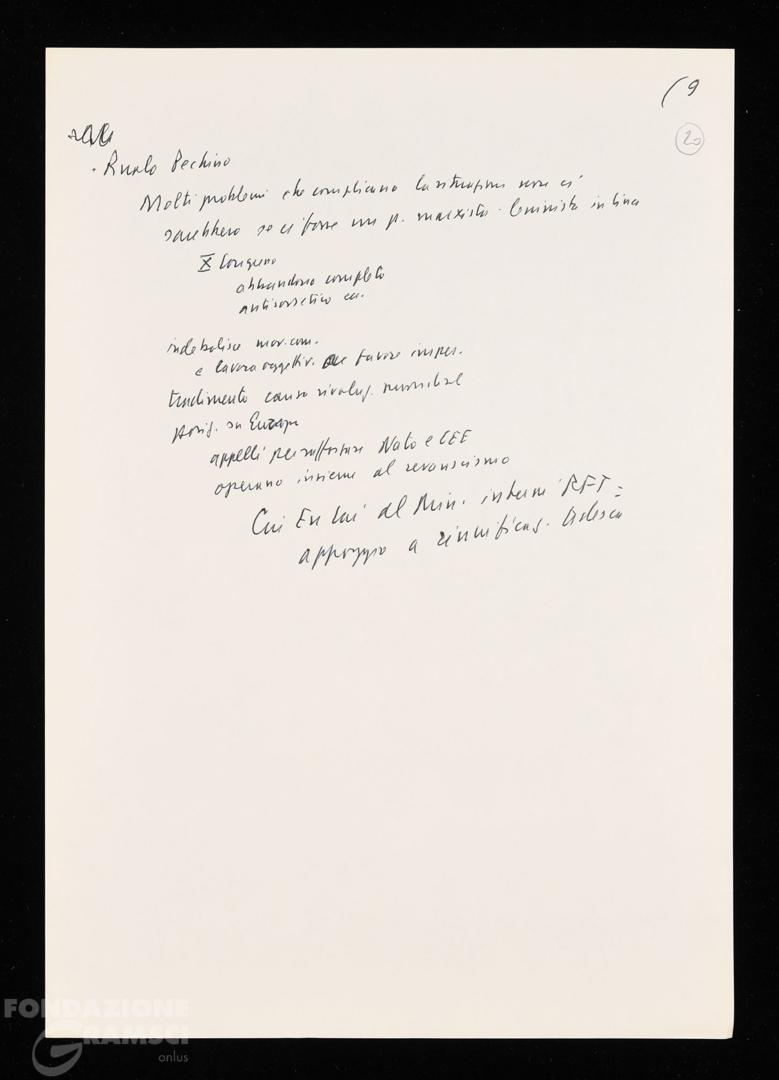 (9
20
. Ruolo Pechino
Molti problemi che complicano la situazione non ci
sarebbero se ci fosse un p. marxista-leninista in Cina
X Congresso
abbandono completo
antisovietico
indebolisce mov. com.
e lavora oggettiv. a favore imper.
tradimento causa rivoluz. mondiale
posiz. su Europa
appelli per rafforzare Nato e CEE
operano insieme al revanscismo
Ciu En Lai al Min. interni RFT =
appoggio a riunificaz. tedesca
FONDAZIONE
GRAMSCI
onlus